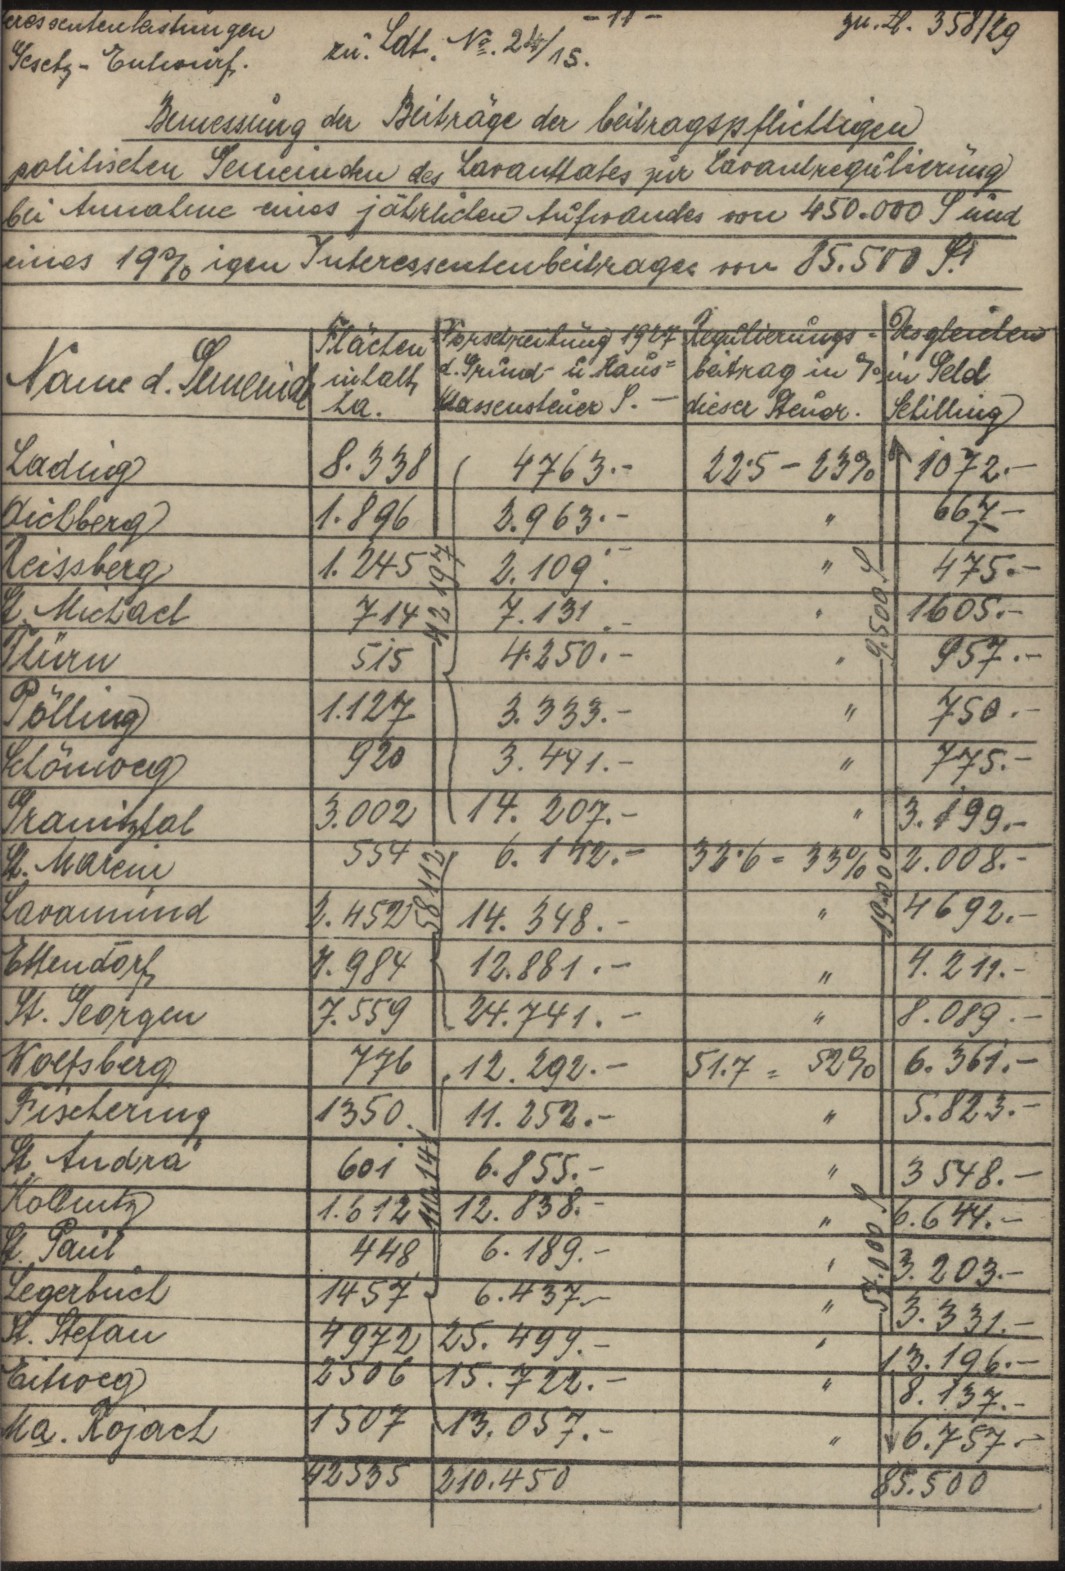 eressentenleistungen
Gesetz-Entwurf.
zu. Ldt. No. 24/15.
- 11 -
zu. Z. 358/29
Bemessung der Beiträge der beitragspflichtigen
politischen Gemeinden des Lavanttales zur Lavantregulierung
bei Annahme eines jährlichen Aufwandes von 450.000 S und
eines 19%igen Interessentenbeitrages von 85.500 S.!
Name d. Gemeind | Flächen inhalt ha. | Vorschreibung 1927 d. Grund- u Haus= klassensteuer S. — | Regulierungs= beitrag in % dieser Steuer. | Desgleichen in Geld Schilling
Lading 8.338 4763.- 22.5 - 23% 1072.-
Aichberg 1.896 2.963.- " 667.-
Reissberg 1.245 2.109.- " 475.-
St. Michael 714 7.131.- " 1605.-
Thürn 515 4.250.- " 957.-
Pölling 1.127 3.333.- " 750.-
Schönweg 920 3.441.- " 775.-
Granitztal 3.002 14.207.- " 3.199.-
42197
9.500 S
St. Marein 554 6.142.- 32.6 = 33% 2.008.-
Lavamünd 2.452 14.348.- " 4692.-
Ettendorf 4.984 12.881.- " 4.211.-
St. Georgen 7.559 24.741.- " 8.089.-
58112
19000
Wolfsberg 776 12.292.- 51.7 = 52% 6.361.-
Fischering 1350. 11.252.- " 5.823.-
St. Andrä 601 6.855.- " 3548.-
Kollnitz 1.612 12.838.- " 6.644.-
St. Paul 448 6.189.- " 3.203.-
Legerbuch 1457 6.437.- " 3.331.-
St. Stefan 4972 25.499.- " 13.196.-
Eitweg 2506 15.722.- " 8.137.-
Ma. Rojach 1507 13.057.- " 6.757.-
110.141
57.000 S
42535 210.450 85.500